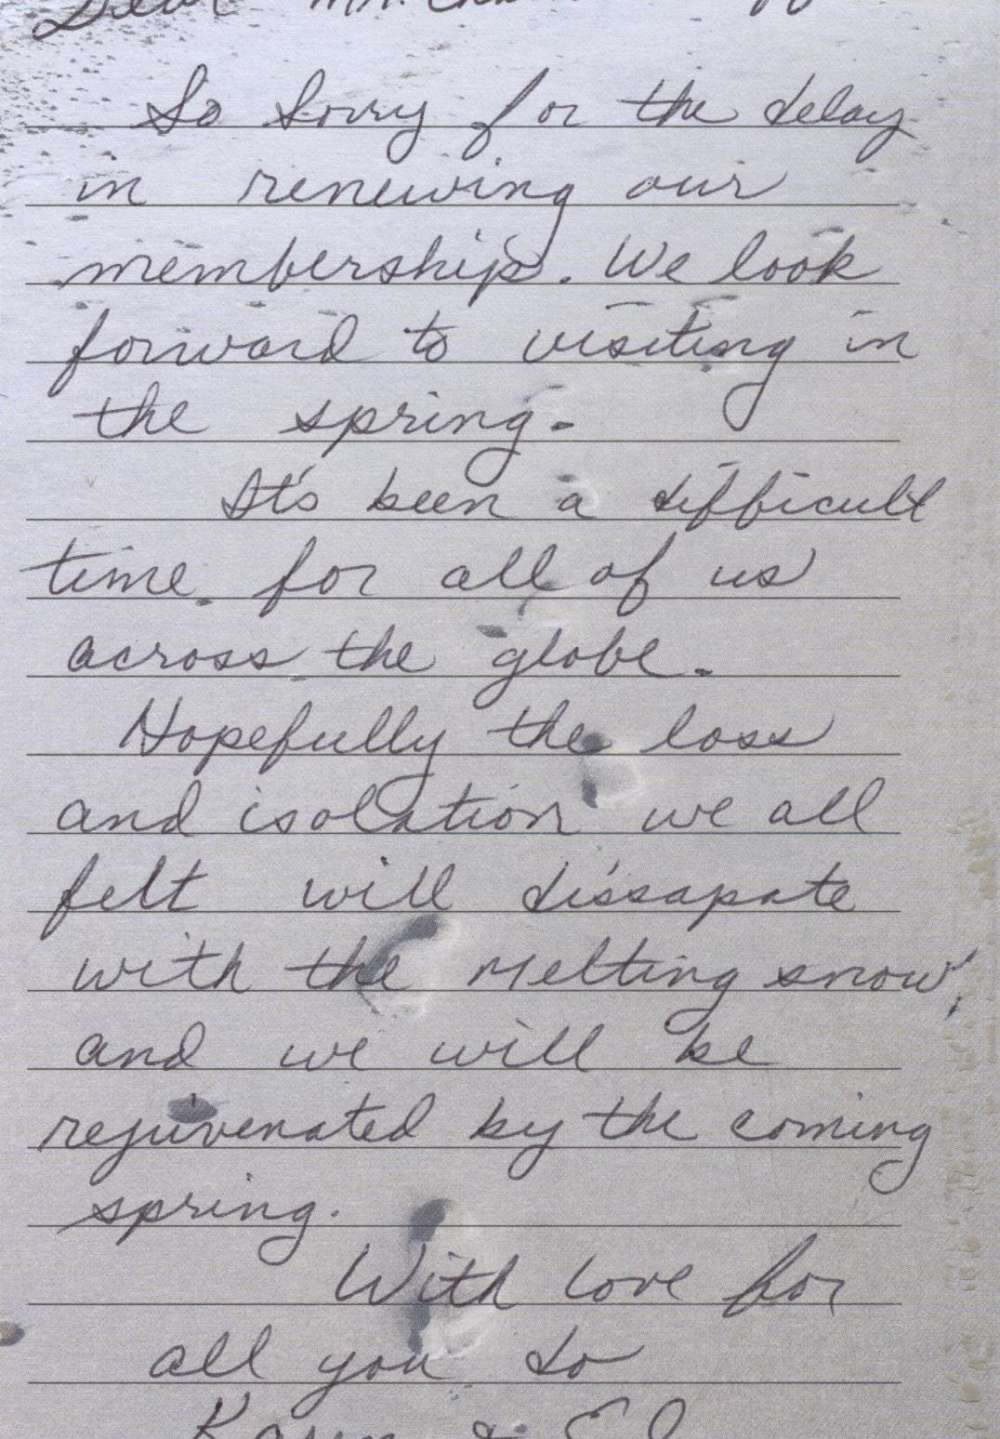 Dear Mr.
So Sorry for the delay
in renewing our
membership. We look
forward to visiting in
the spring.
It's been a difficult
time for all of us
across the globe.
Hopefully the loss
and isolation we all
felt will dissapate
with the melting snow,
and we will be
rejuvenated by the coming
spring.
With love for
all you do
&